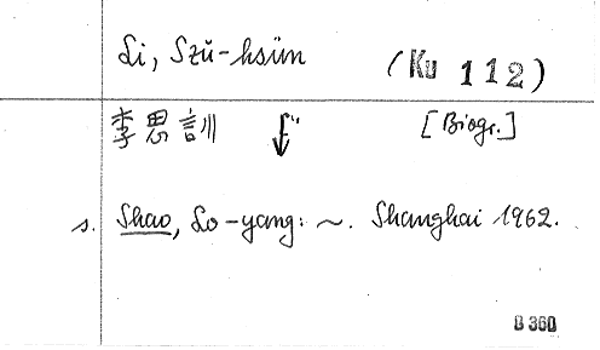 Li, Szŭ-hsün (Ku 112)
李思訓 [Biogr.]
s. Shao, Lo-yang: ~. Shanghai 1962.
B 360